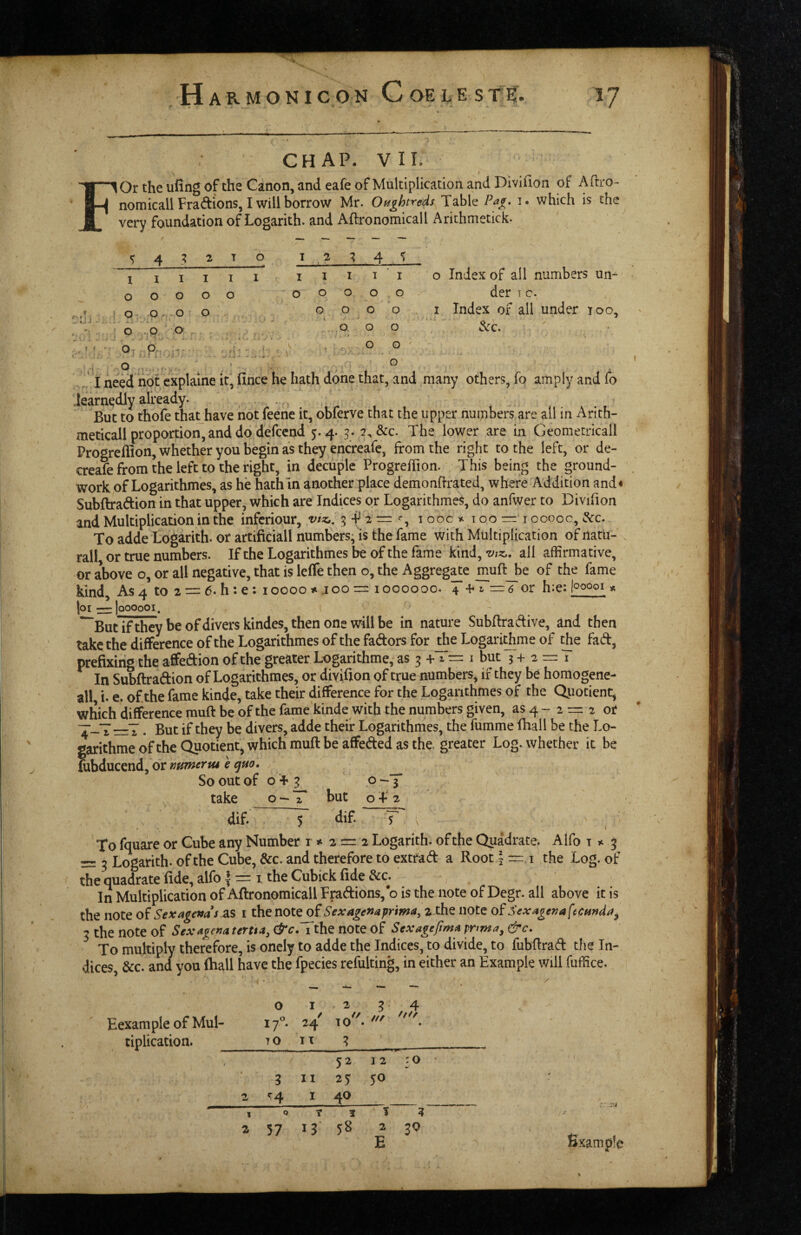 HARMONICON COELESTE. 17
CHAP. VII.
FOr the uſing of the Canon, and eaſe of Multiplication and Diviſion of Aſtro-
nomicall Fractions, I will borrow Mr. Oughtreds Table Pag. 1. which is the
very foundation of Logarith. and Aſtronomicall Arithmetick.
5 4 3 2 1 0 1 2 3 4 5
1 1 1 1 1 1 1 1 1 1 1 0 Index of all numbers un-
0 0 0 0 0 0 0 0 0 0 der 1 0.
0 0 0 0 0 0 0 0 1 Index of all under 100,
0 0 0 0 0 0 &c.
0 0 0 0
0 0
I need not explaine it, ſince he hath done that, and many others, ſo amply and ſo
learnedly already.
But to thoſe that have not ſeene it, obſerve that the upper numbers are all in Arith-
meticall proportion, and do deſcend 5. 4. 3. 2, &c. The lower are in Geometricall
Progreſſion, whether you begin as they encreaſe, from the right to the left, or de-
creaſe from the left to the right, in decuple Progreſſion. This being the ground-
work of Logarithmes, as he hath in another place demonſtrated, where Addition and
Subſtraction in that upper, which are Indices or Logarithmes, do anſwer to Diviſion
and Multiplication in the inferiour, viz. 3 + 2 = 5, 1000 * 100 = 100000, &c.
To adde Logarith. or artificiall numbers, is the ſame with Multiplication of natu-
rall, or true numbers. If the Logarithmes be of the ſame kind, viz. all affirmative,
or above 0, or all negative, that is leſſe then 0, the Aggregate muſt be of the ſame
kind, As 4 to 2 = 6. h : e : 10000 * 100 = 1000000. 4̅ + 2̅ = 6̅ or h:e: |00001 *
|01 = |000001.
But if they be of divers kindes, then one will be in nature Subſtractive, and then
take the difference of the Logarithmes of the factors for the Logarithme of the fact,
prefixing the affection of the greater Logarithme, as 3 + 2̅ = 1 but 3̅ + 2 = 1̅
In Subſtraction of Logarithmes, or diviſion of true numbers, if they be homogene-
all, i. e. of the ſame kinde, take their difference for the Logarithmes of the Quotient,
which difference muſt be of the ſame kinde with the numbers given, as 4 – 2 = 2 or
4̅–2̅ = 2̅. But if they be divers, adde their Logarithmes, the ſumme ſhall be the Lo-
garithme of the Quotient, which muſt be affected as the greater Log. whether it be
ſubducend, or numerus e quo.
So out of 0 + 3 0 – 3̅
take 0 – 2̅ but 0 + 2
dif. 5 dif. 5̅
To ſquare or Cube any Number 1 * 2 = 2 Logarith. of the Quadrate. Alſo 1 * 3
= 3 Logarith. of the Cube, &c. and therefore to extract a Root ½ = 1 the Log. of
the quadrate ſide, alſo ⅓ = 1 the Cubick ſide &c.
In Multiplication of Aſtronomicall Fractions, °0 is the note of Degr. all above it is
the note of Sexagena's as 1 the note of Sexagena prima, 2 the note of Sexagena ſecunda,
3 the note of Sexagena tertia, &c. 1̅ the note of Sexageſima prima, &c.
To multiply therefore, is onely to adde the Indices, to divide, to ſubſtract the In-
dices, &c. and you ſhall have the ſpecies reſulting, in either an Example will ſuffice.
0 1 2 3 4
Eexample of Mul- 17°. 24′ 10″. ‴ ⁗.
tiplication. 10 11 3
52 12 30
3 11 25 50
2 54 1 40
1 0 1 2 3 4
2 57 13 58 2 30
E Example